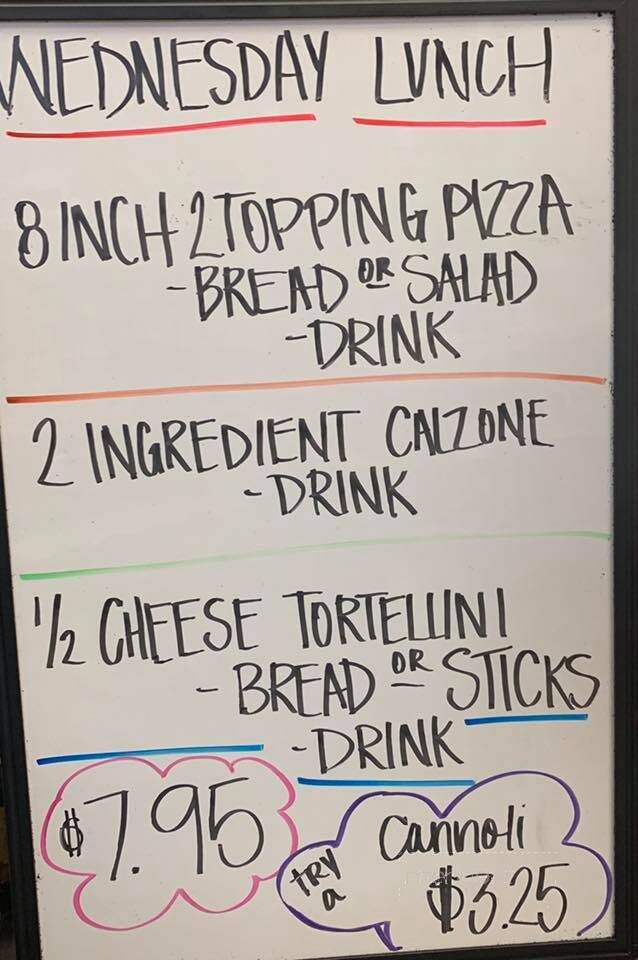 WEDNESDAY LUNCH
8 INCH 2 TOPPING PIZZA
- BREAD OR SALAD
- DRINK
2 INGREDIENT CALZONE
- DRINK
1/2 CHEESE TORTELLINI
- BREAD OR STICKS
- DRINK
$7.95
TRY a Cannoli
$3.25